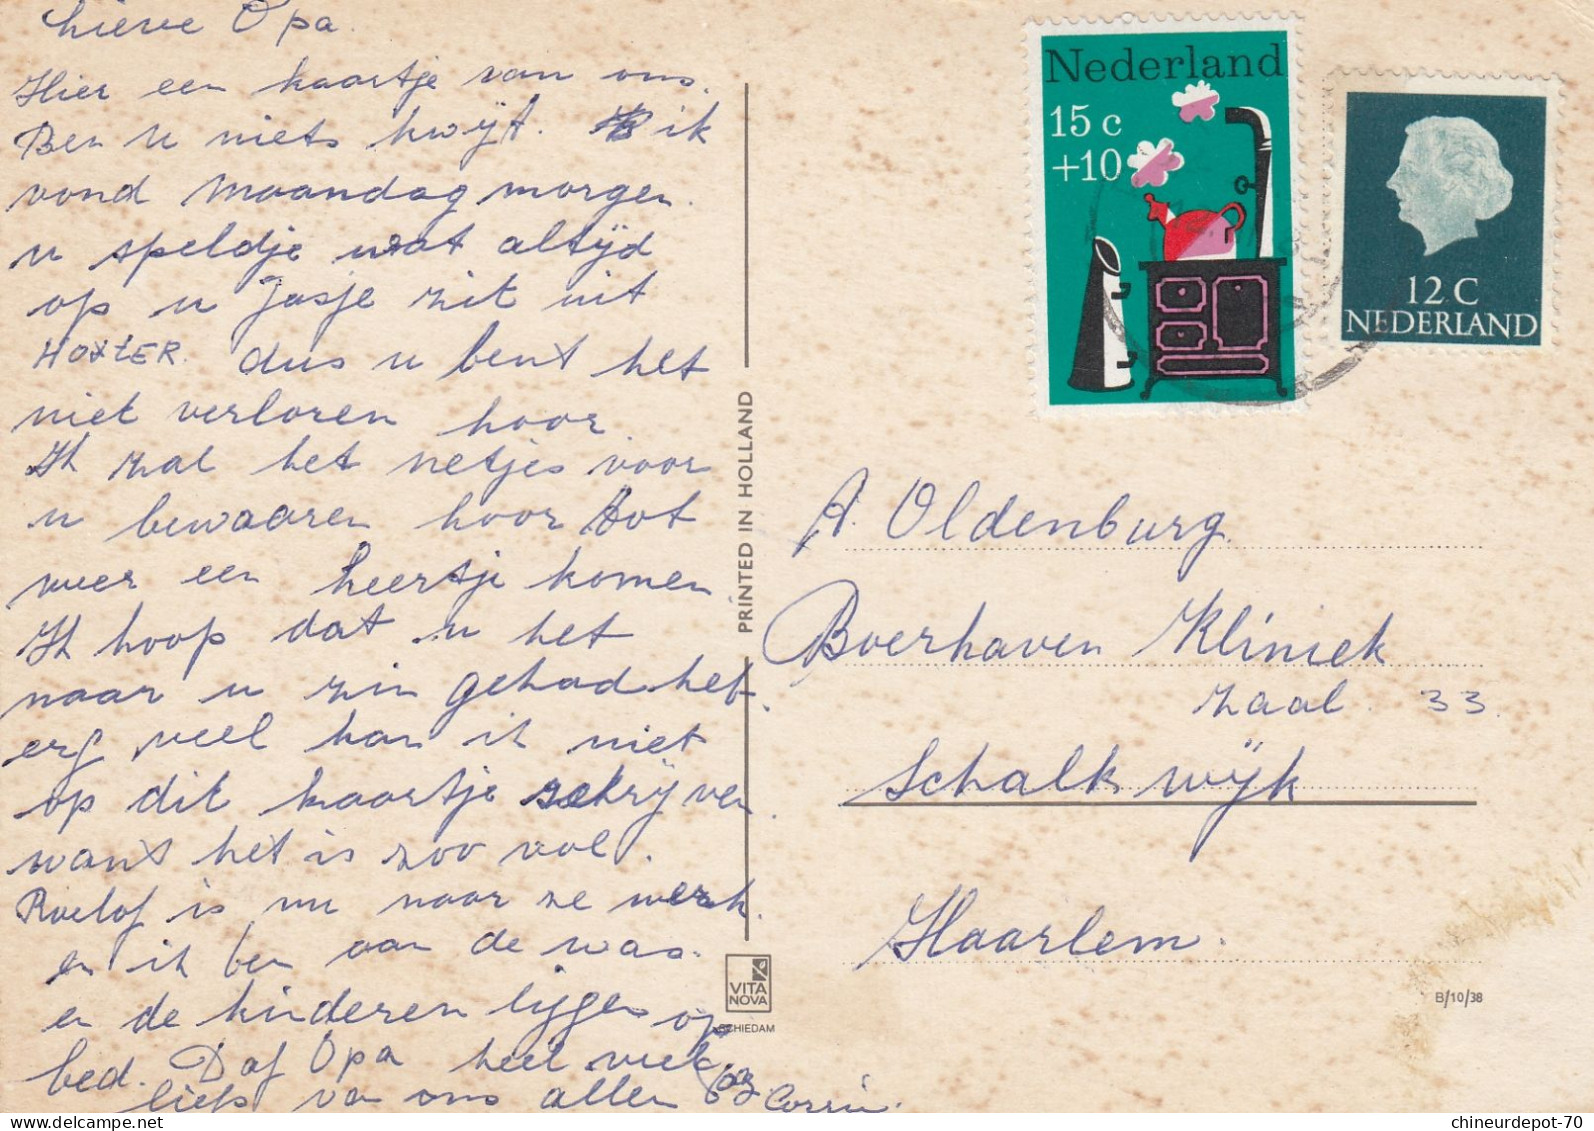 Lieve Opa.
Hier een kaartje van ons.
Ben u niets kwijt. ik
vond Maandag morgen.
u speldje wat altijd
op u Jasje zit uit
HOXTER. dus u bent het
niet verloren hoor.
Ik zal het netjes voor
u bewaaren hoor tot
weer een keertje komen.
Ik hoop dat u het
naar u zin gehad heb.
erg veel kan ik niet
op dit kaartje schrijven.
want het is zoo vol.
Roelof is nu naar ze werk.
en ik ben aan de was.
en de kinderen liggen op
bed. Dag Opa heel veel
liefs van ons allen Corrie.
PRINTED IN HOLLAND
VITA
NOVA
SCHIEDAM
Nederland
15 c
+10
12 C
NEDERLAND
A. Oldenburg.
Boerhaven Kliniek
zaal. 33.
Schalkwijk
Haarlem.
B/10/38
chineurdepot-70